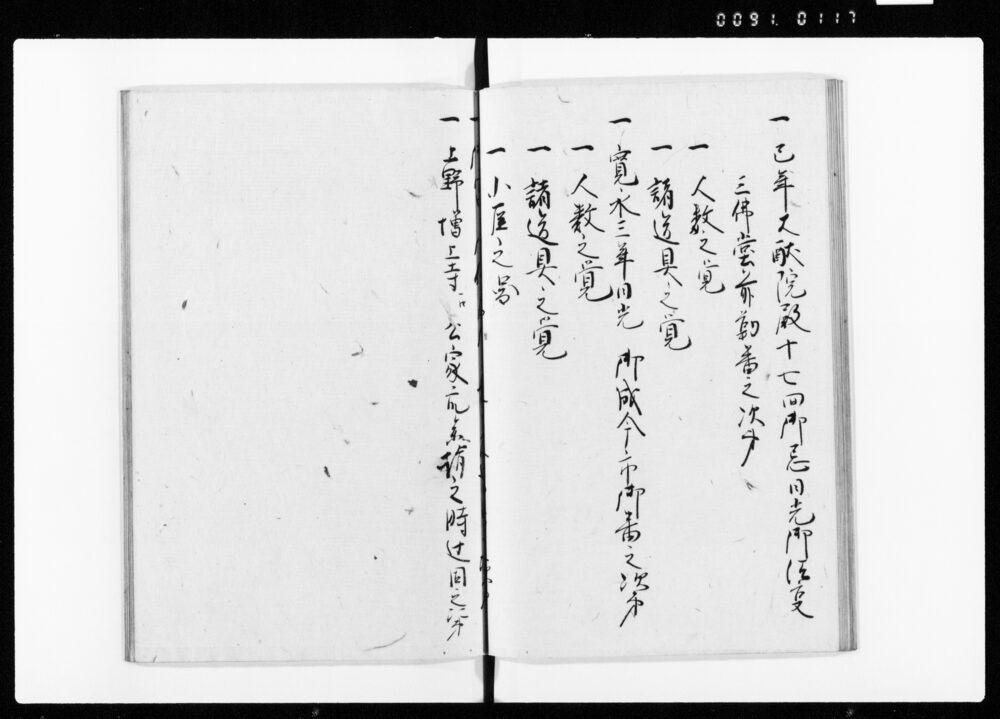 0091.0117
一 巳年大猷院殿十七回御忌日光御法事
三佛堂前勤番之次第
一 人数之覚
一 諸道具之覚
一 寛永三年日光 御成今市御番之次第
一 人数之覚
一 諸道具之覚
一 小屋之図
一
一 上野増上寺 公家衆参詣之時辻固之次第